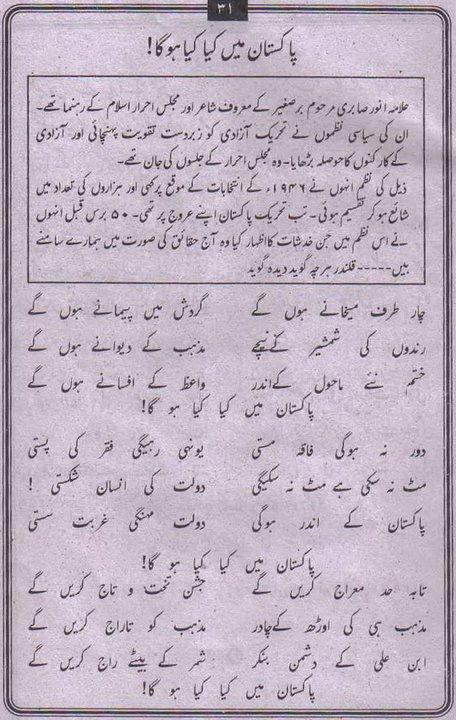 ۳۱
پاکستان میں کیا کیا ہوگا!
علامہ انور صابری مرحوم برصغیر کے معروف شاعر اور مجلس احرار اسلام کے رہنما تھے۔
ان کی سیاسی نظموں نے تحریک آزادی کو زبردست تقویت پہنچائی اور آزادی
کے کارکنوں کا حوصلہ بڑھایا۔ وہ مجلس احرار کے جلسوں کی جان تھے۔
ذیل کی نظم انہوں نے ۱۹۴۶ء کے انتخابات کے موقع پر کہی اور ہزاروں کی تعداد میں
شائع ہو کر تقسیم ہوئی۔ تب تحریک پاکستان اپنے عروج پر تھی۔ ۵۰ برس قبل انہوں
نے اس نظم میں جن خدشات کا اظہار کیا وہ آج حقائق کی صورت میں ہمارے سامنے
ہیں----- قلندر ہرچہ گوید دیدہ گوید
چار طرف میخانے ہوں گے گردش میں پیمانے ہوں گے
رندوں کی شمشیر کے نیچے مذہب کے دیوانے ہوں گے
ختم نئے ماحول کے اندر واعظ کے افسانے ہوں گے
پاکستان میں کیا کیا ہو گا!
دور نہ ہوگی فاقہ مستی یونہی رہیگی فقر کی پستی
مٹ نہ سکی ہے مٹ نہ سکیگی دولت کی انسان شکستی !
پاکستان کے اندر ہوگی دولت مہنگی غربت سستی
پاکستان میں کیا کیا ہو گا!
تابہ حد معراج کریں گے جشن تخت و تاج کریں گے
مذہب ہی کی اوڑھ کے چادر مذہب کو تاراج کریں گے
ابن علی کے دشمن بنکر شمر کے بیٹے راج کریں گے
پاکستان میں کیا کیا ہو گا!